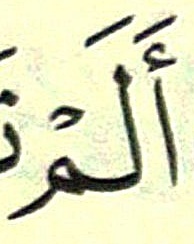 أَلَمْ